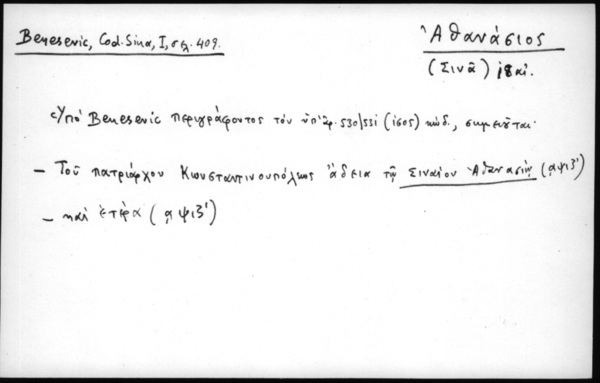 Benesenic, Cod. Sina, I, σελ. 409.
Ἀθανάσιος
(Σινᾶ) ιη αἰ.
Ὑπὸ Benesenic περιγράφοντος τὸν ὑπ' ἀρ. 530/531 (1605) κώδ., σημειοῦται·
— Τοῦ πατριάρχου Κωνσταντινουπόλεως ἄδεια τῷ Σιναίου Ἀθανασίῳ (͵αψιβ')
— καὶ ἑτέρα (͵αψιβ')